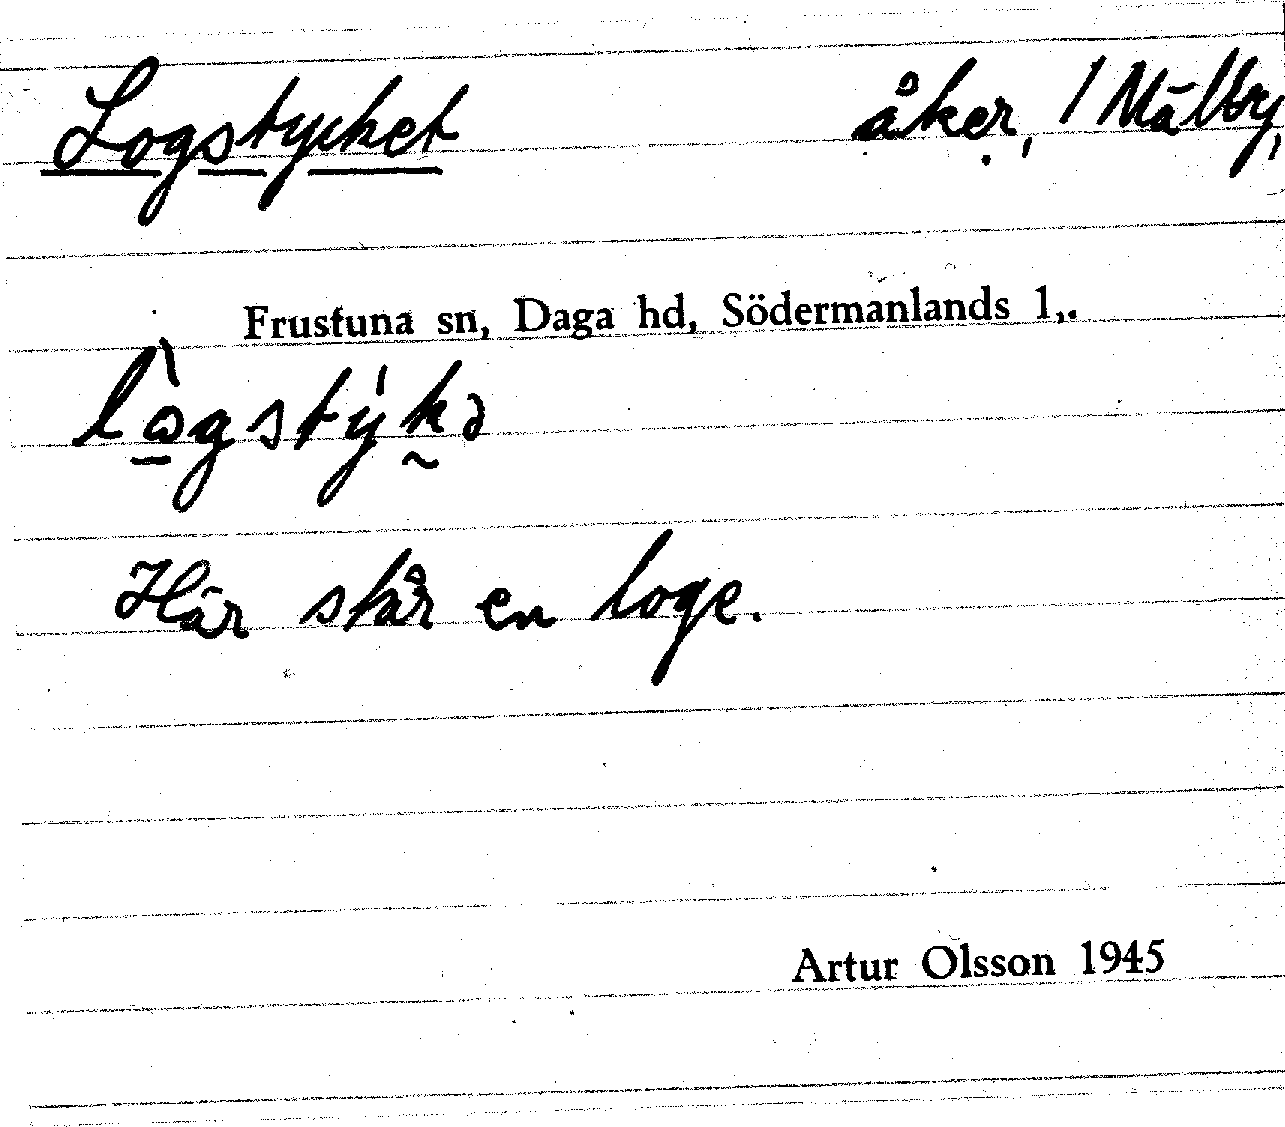 Logstycket åker, / Mälby,
Frustuna sn, Daga hd, Södermanlands l,.
lògstýkə
Här står en loge.
Artur Olsson 1945